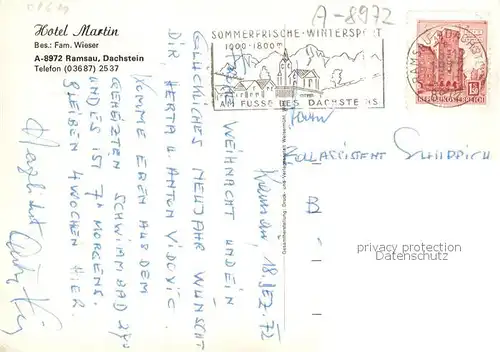 A-8972
Hotel Martin
Bes.: Fam. Wieser
A-8972 Ramsau, Dachstein
Telefon (03687) 2537
SOMMERFRISCHE - WINTERSPORT
1000-1800m
AM FUSSE DES DACHSTEINS
RAMSAU AM DACHSTEIN
REPUBLIK ÖSTERREICH
Ramsau, 18. DEZ. 72
WEIHNACHT UND EIN
GLÜCKLICHES NEUJAHR WÜNSCHT
DIR, HERTA U. ANTON VIDOVIC.
KOMME EBEN AUS DEM
GEHEIZTEN SCHWIMMBAD 28°
UND ES IST 7h MORGENS.
BLEIBEN 4 WOCHEN HIER.
Herzlichst
Herrn
ZOLLASSISTENT
B
privacy protection
watermark